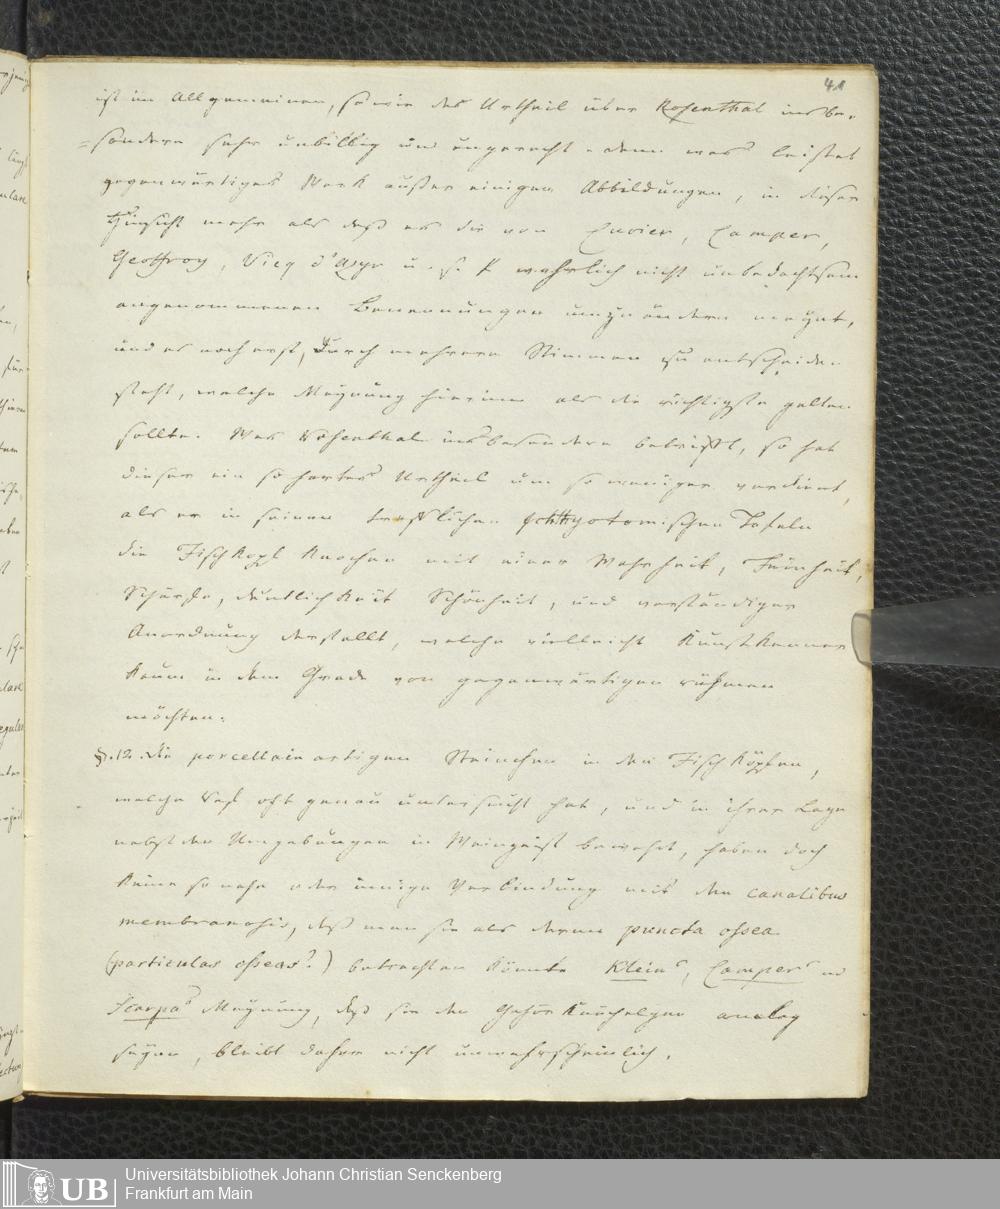 41
ist im Allgemeinen, sowie das Urtheil über Rosenthal insbe-
=sondere sehr unbillig und ungerecht - denn was leistet
gegenwärtiges Werk außer einigen Abbildungen, in dieser
Hinsicht mehr als daß es die von Cuvier, Camper,
Geoffroy, Vicq d'Azyr u. s. f. wahrlich nicht unbedachtsam
angenommenen Benennungen umzuändern meynt,
und es noch erst, durch mehrere Stimmen zu entscheiden
steht, welche Meynung hierinn als die richtigste gelten
sollte. Was Rosenthal insbesondere betrifft, so hat
dieser ein so hartes Urtheil um so weniger verdient,
als er in seinen trefflichen Ichthyotomischen Tafeln
die Fischkopf Knochen mit einer Wahrheit, Feinheit,
Schärfe, deutlichkeit Schönheit, und verständiger
Anordnung darstellt, welche vielleicht Kunstkenner
kaum in dem Grade von gegenwärtigen rühmen
möchten.
§.12. die porcellainartigen Steinchen in den Fischköpfen,
welche Ref oft genau untersucht hat, und in ihrer Lage
nebst den Umgebungen in Weingeist bewahrt, haben doch
keine so nahe oder innige Verbindung mit den canalibus
membranosis, daß man sie als deren puncta ossea
(particulas osseas?) betrachten könnte Kleins, Campers und
Scarpas Meynung, daß sie den Gehörknöchelgen analog
seyen, bleibt daher nicht unwahrscheinlich.
UB
Universitätsbibliothek Johann Christian Senckenberg
Frankfurt am Main